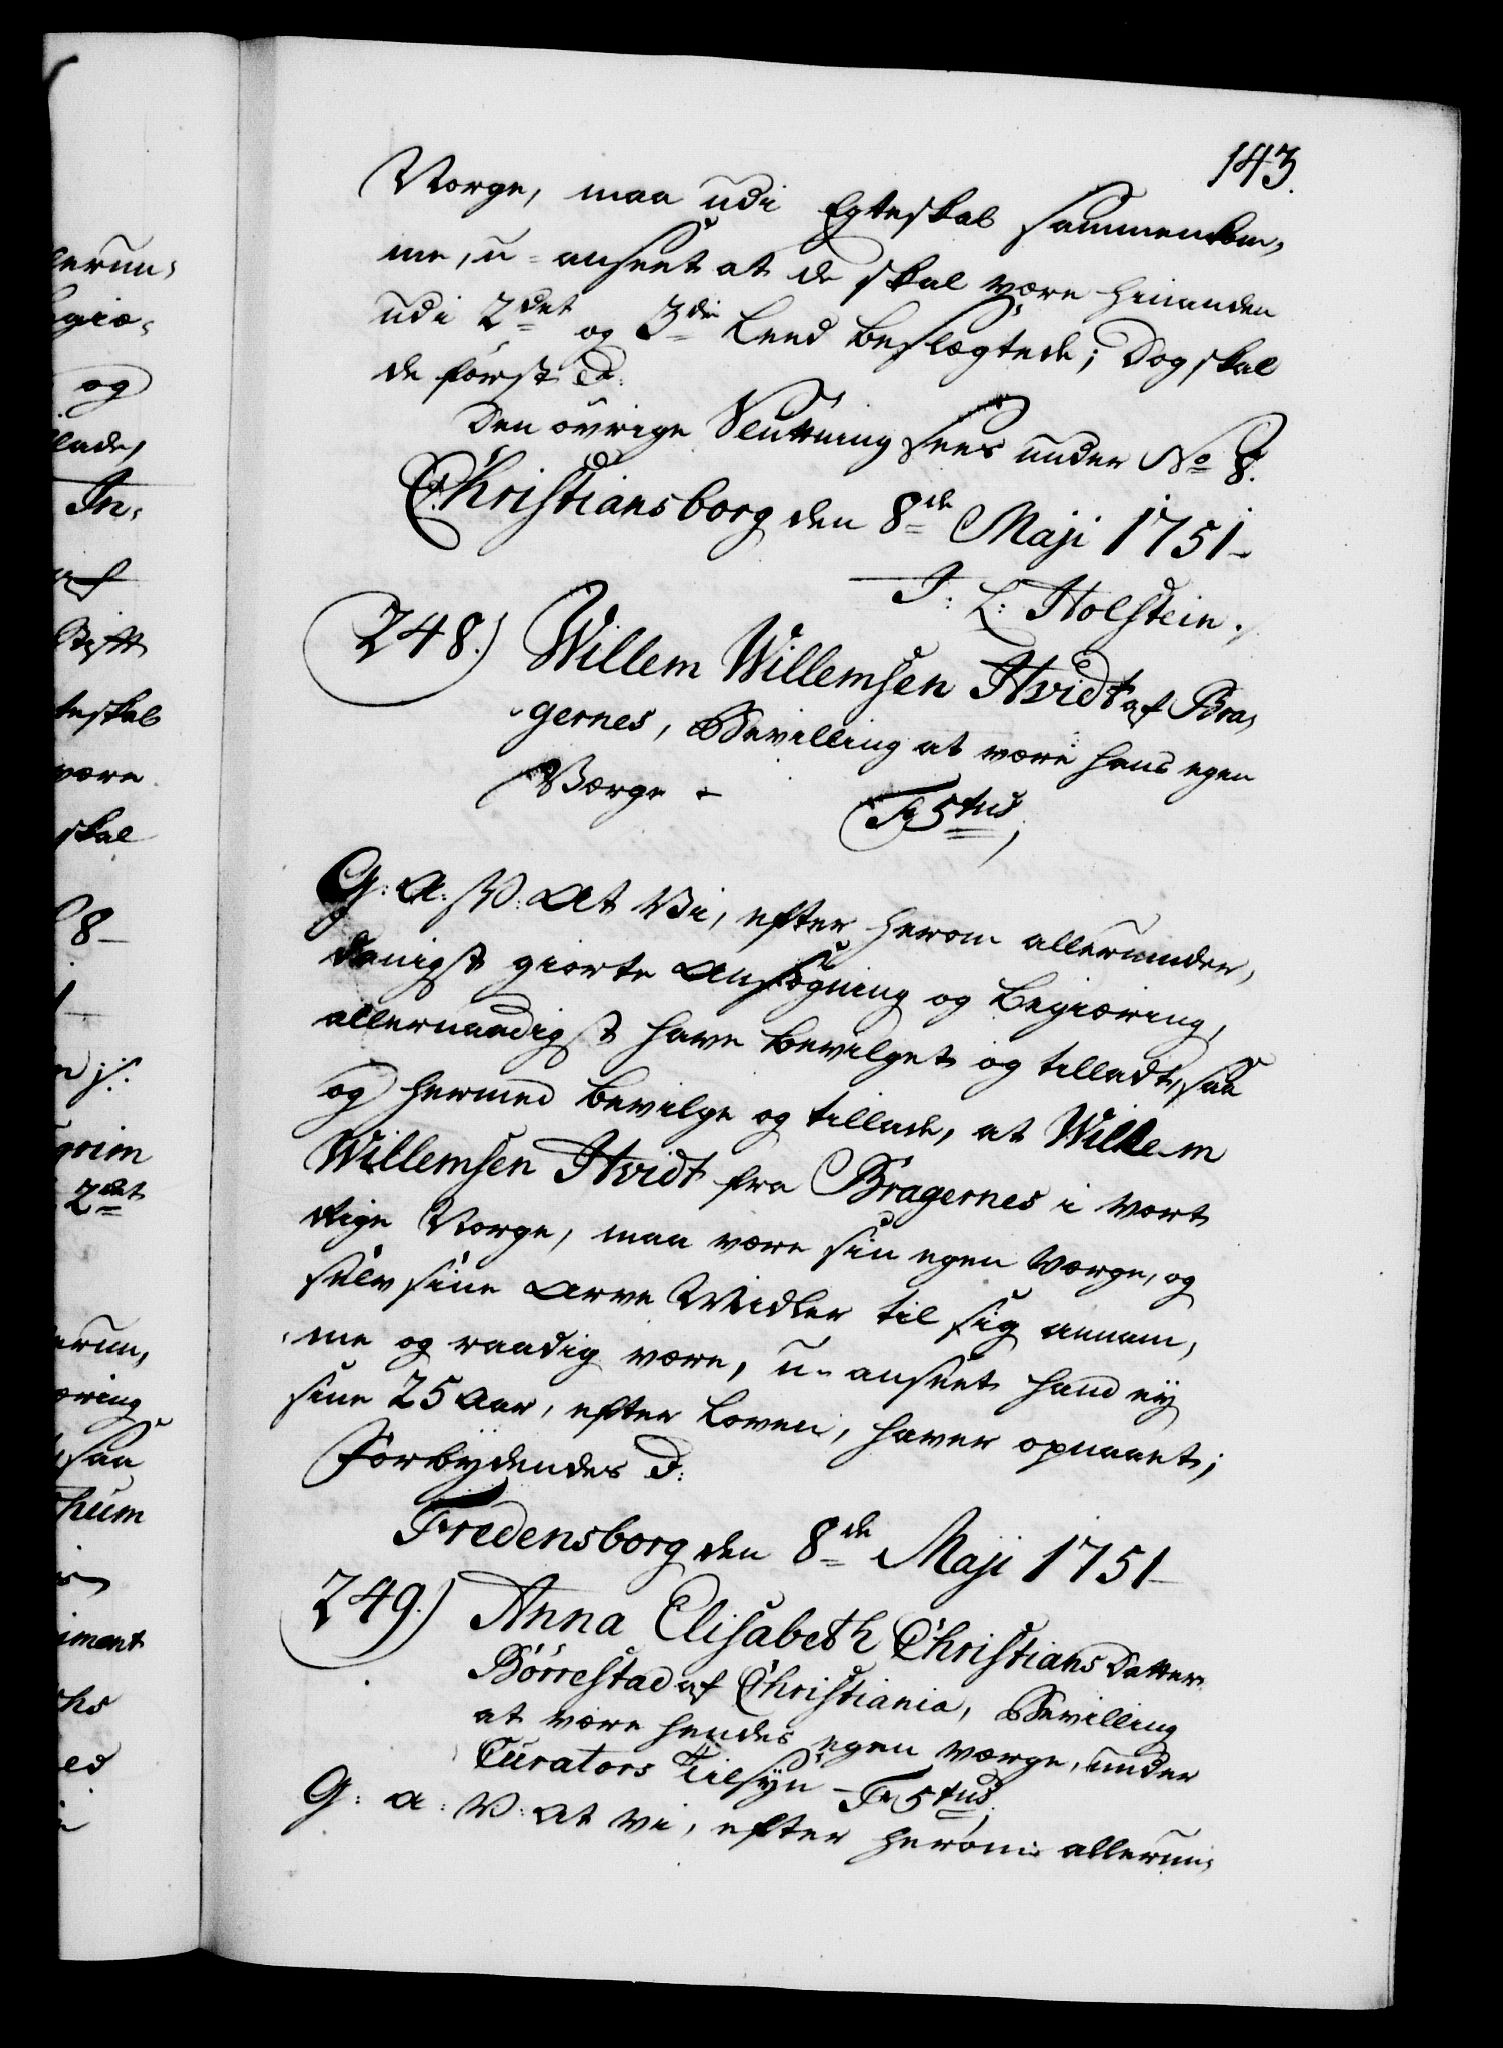 143.
Norge, maa udi Egteskab sammenkom,
me, u-anseet at de skal være hinanden
udi 2det og 3die Leed beslægtede; Dog skal
de først &c:
Den øvrige Slutning sees under No 8.
Christiansborg den 8de Maji 1751-
J: L: Holstein.
248.) Willem Willemsen Hvidt af Bra,
gernes, Bevilling at være hans egen
Værge -
Fr 5tus
G: A: V: At Vi, efter herom allerunder,
danigst giorte Ansøgning og Begiæring,
allernaadigst have bevilget og tilladt, saa
og hermed bevilge og tillade, at Willem
Willemsen Hvidt fra Bragernes i vort
Rige Norge, maa være sin egen Værge, og
selv sine Arve Midler til sig annam,
me og raadig være, u-anseet hand ey
sine 25 Aar, efter Loven, haver opnaaet;
Forbydendes &:
Fredensborg den 8de Maji 1751-
249.) Anna Elisabeth Christians Datter
Börrestad af Christiania, Bevilling
at være hendes egen Værge, under
Curators Tilsyn - Fr 5tus
G: A: V: At Vi, efter herom allerun,
lerun,
giæ,
og
lade,
In,
af
Stift
teskab
være
skal
8-
grim
2det
erun,
æring
saa
hum
iment
chs
ed